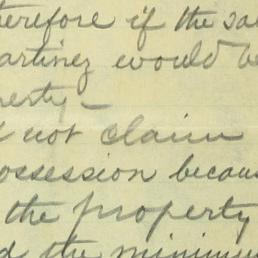 therefore if the sa
artinez would be
perty -
d not claim
possession becaus
the property
d the minimum